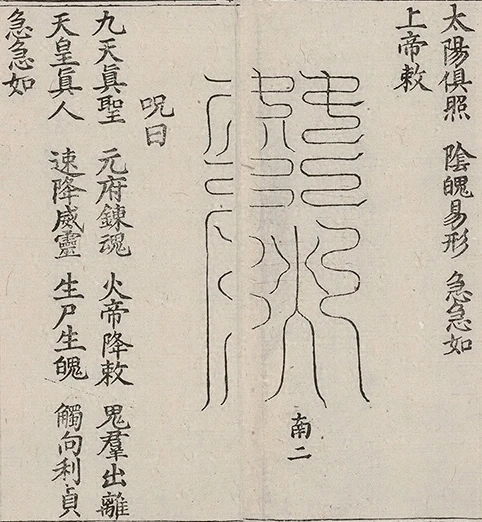 太陽俱照 陰魄易形 急急如
上帝敕
南二
呪曰
九天真聖 元府鍊魂 火帝降敕 鬼羣出離
天皇真人 速降威靈 生尸生魄 觸向利貞
急急如